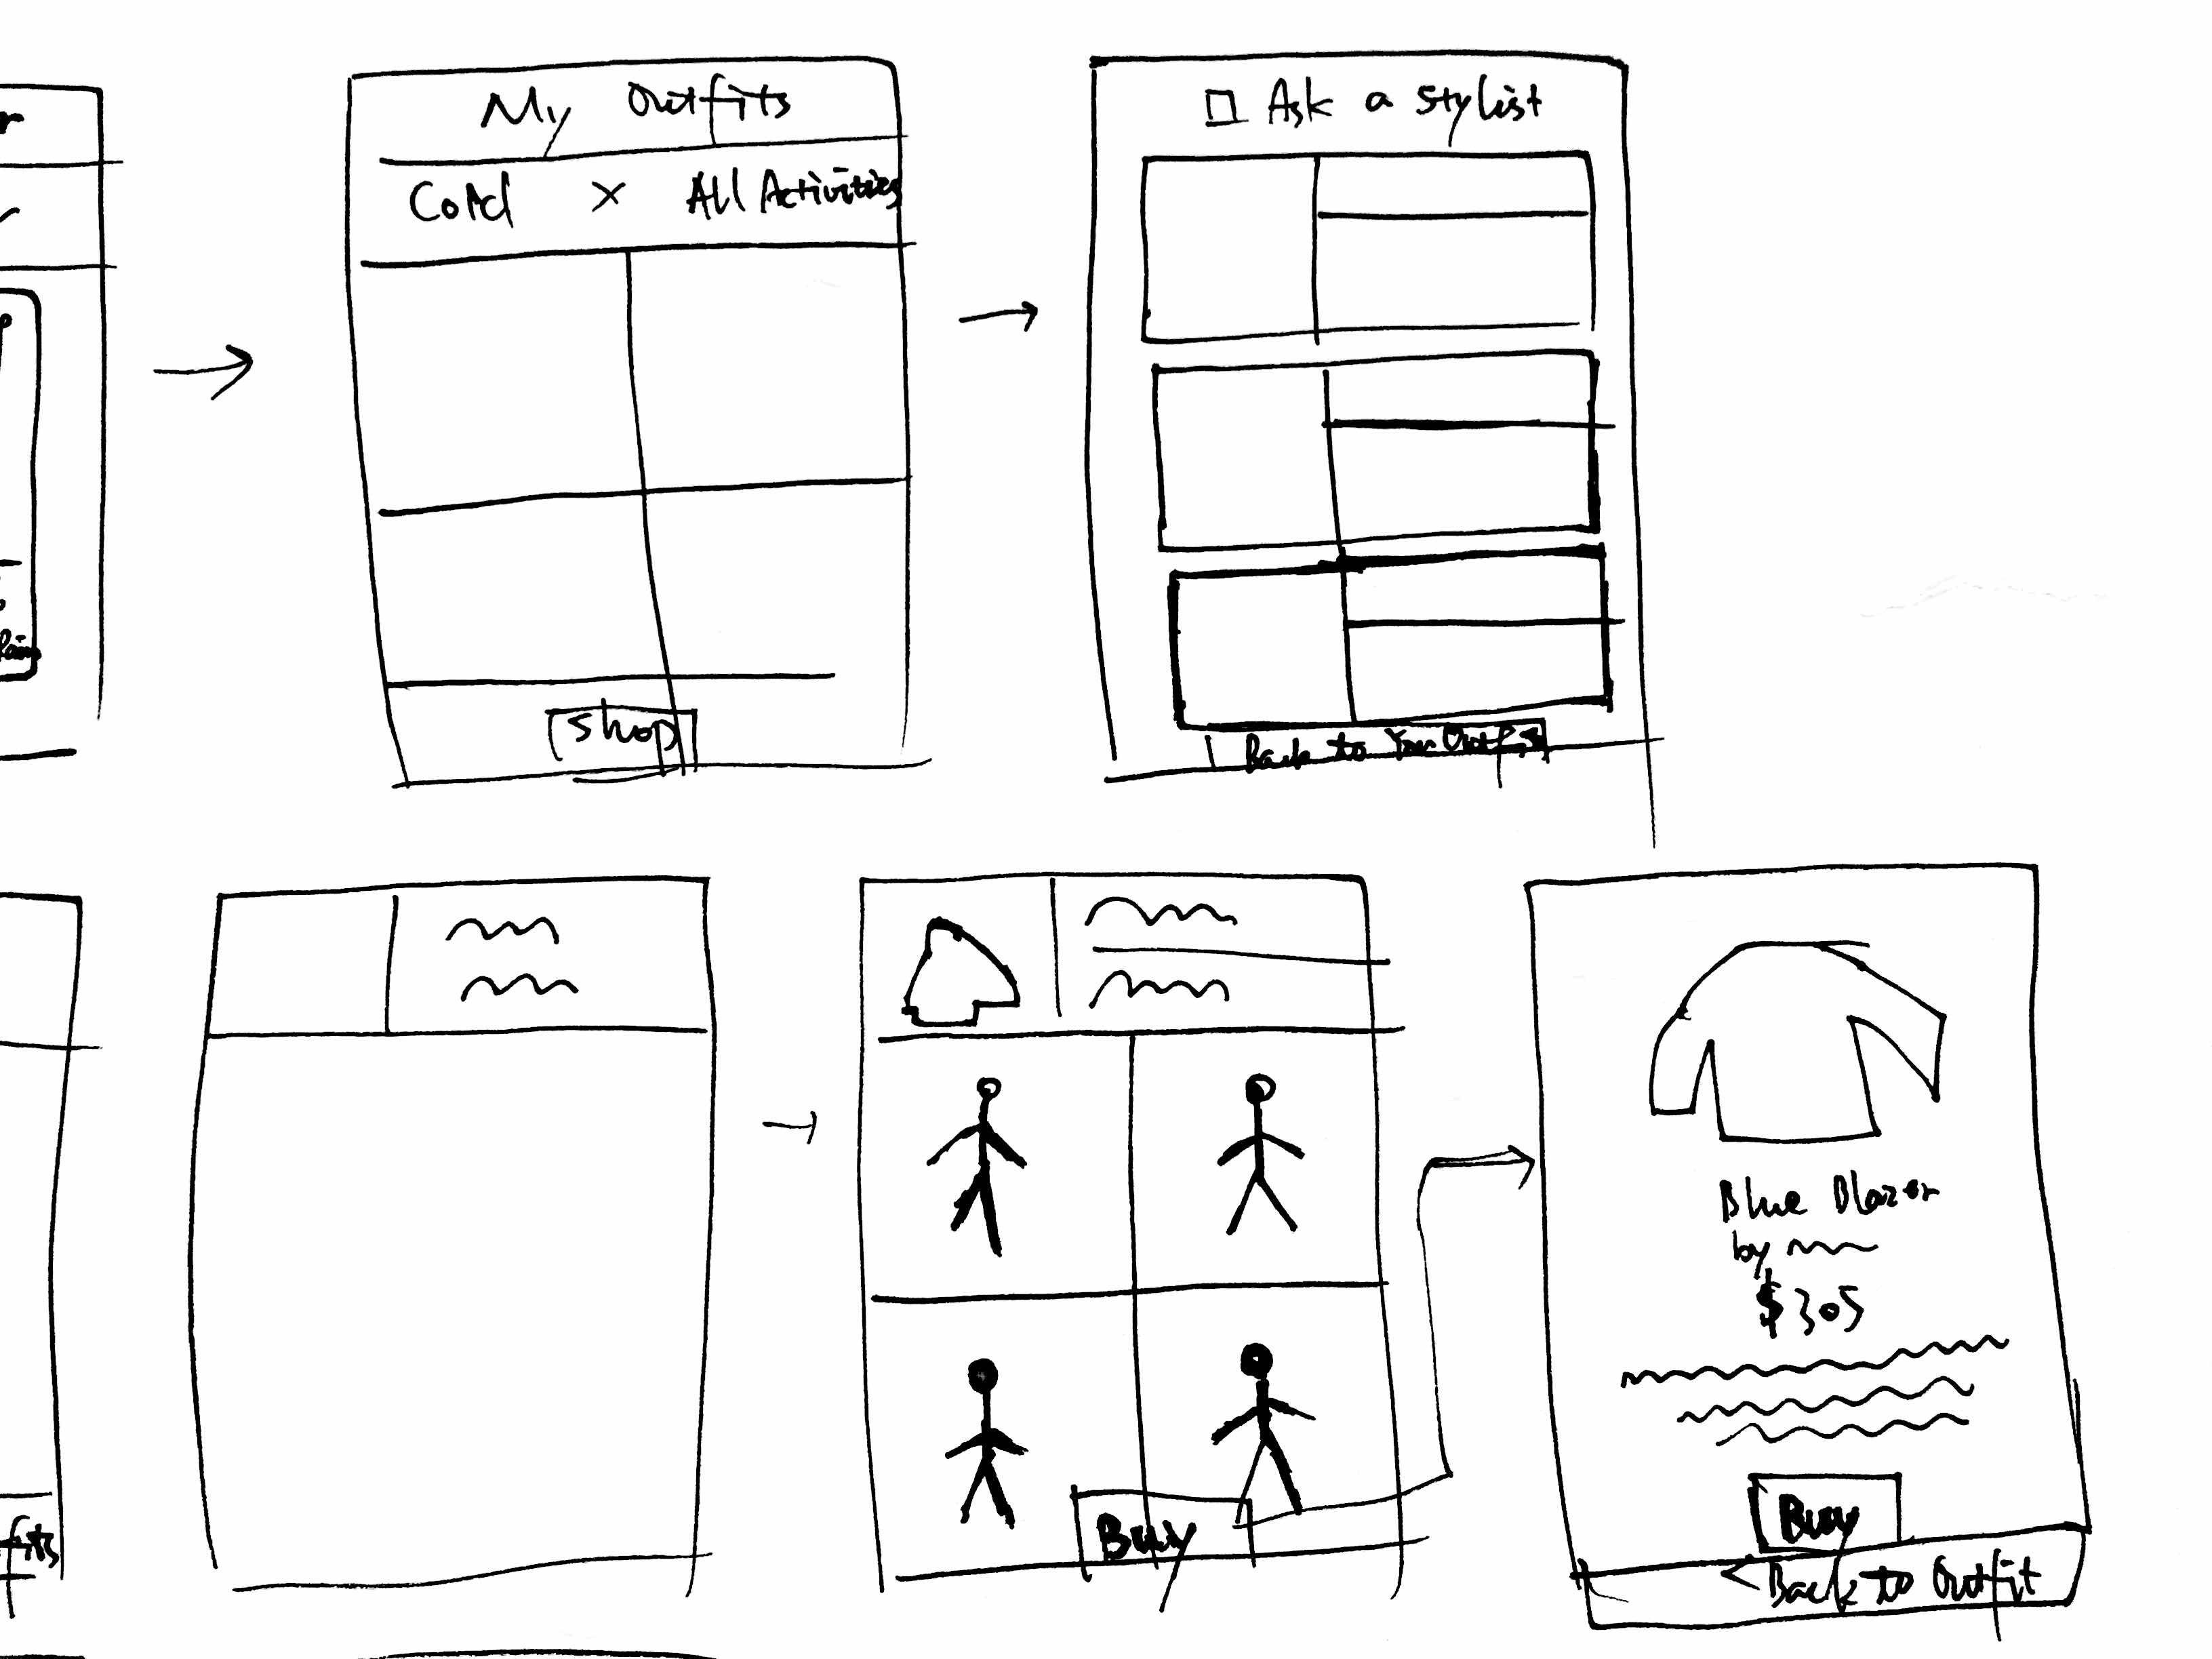 My Outfits
Cold X All Activities
Shop
Ask a stylist
Back to Your Outfits
Buy
Blue Blazer
by
$305
Buy
< Back to Outfit
fits